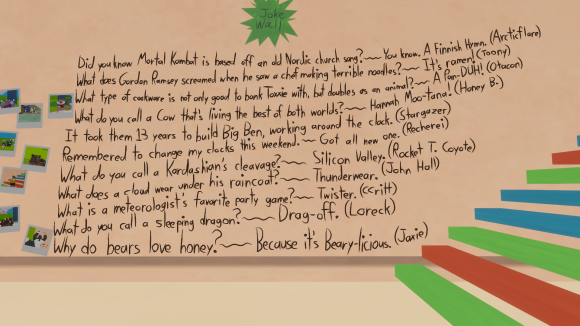 Joke
Wall
Did you know Mortal Kombat is based off an old Nordic church song?~~ You know. A Finnish Hymn. (Arcticflare)
What does Gordon Ramsey screamed when he saw a chef making terrible noodles?~~ It's ramen! (Toony)
What type of cookware is not only good to bonk Toxxie with, but doubles as an animal?~~ A Pan-DUH! (Otacon)
What do you call a Cow that's living the best of both worlds?~~ Hannah Moo-tana! (Honey B.)
It took them 13 years to build Big Ben, working around the clock. (Stargazer)
Remembered to change my clocks this weekend.~~ Got all new one. (Recherei)
What do you call a Kardashian's cleavage?~~ Silicon Valley. (Rocket T. Coyote)
What does a cloud wear under his raincoat?~~ Thunderwear. (John Hall)
What is a meteorologist's favorite party game?~~ Twister. (Ccritt)
What do you call a sleeping dragon?~~ Drag-off. (Loreck)
Why do bears love honey?~~ Because it's Beary-licious. (Jaxie)